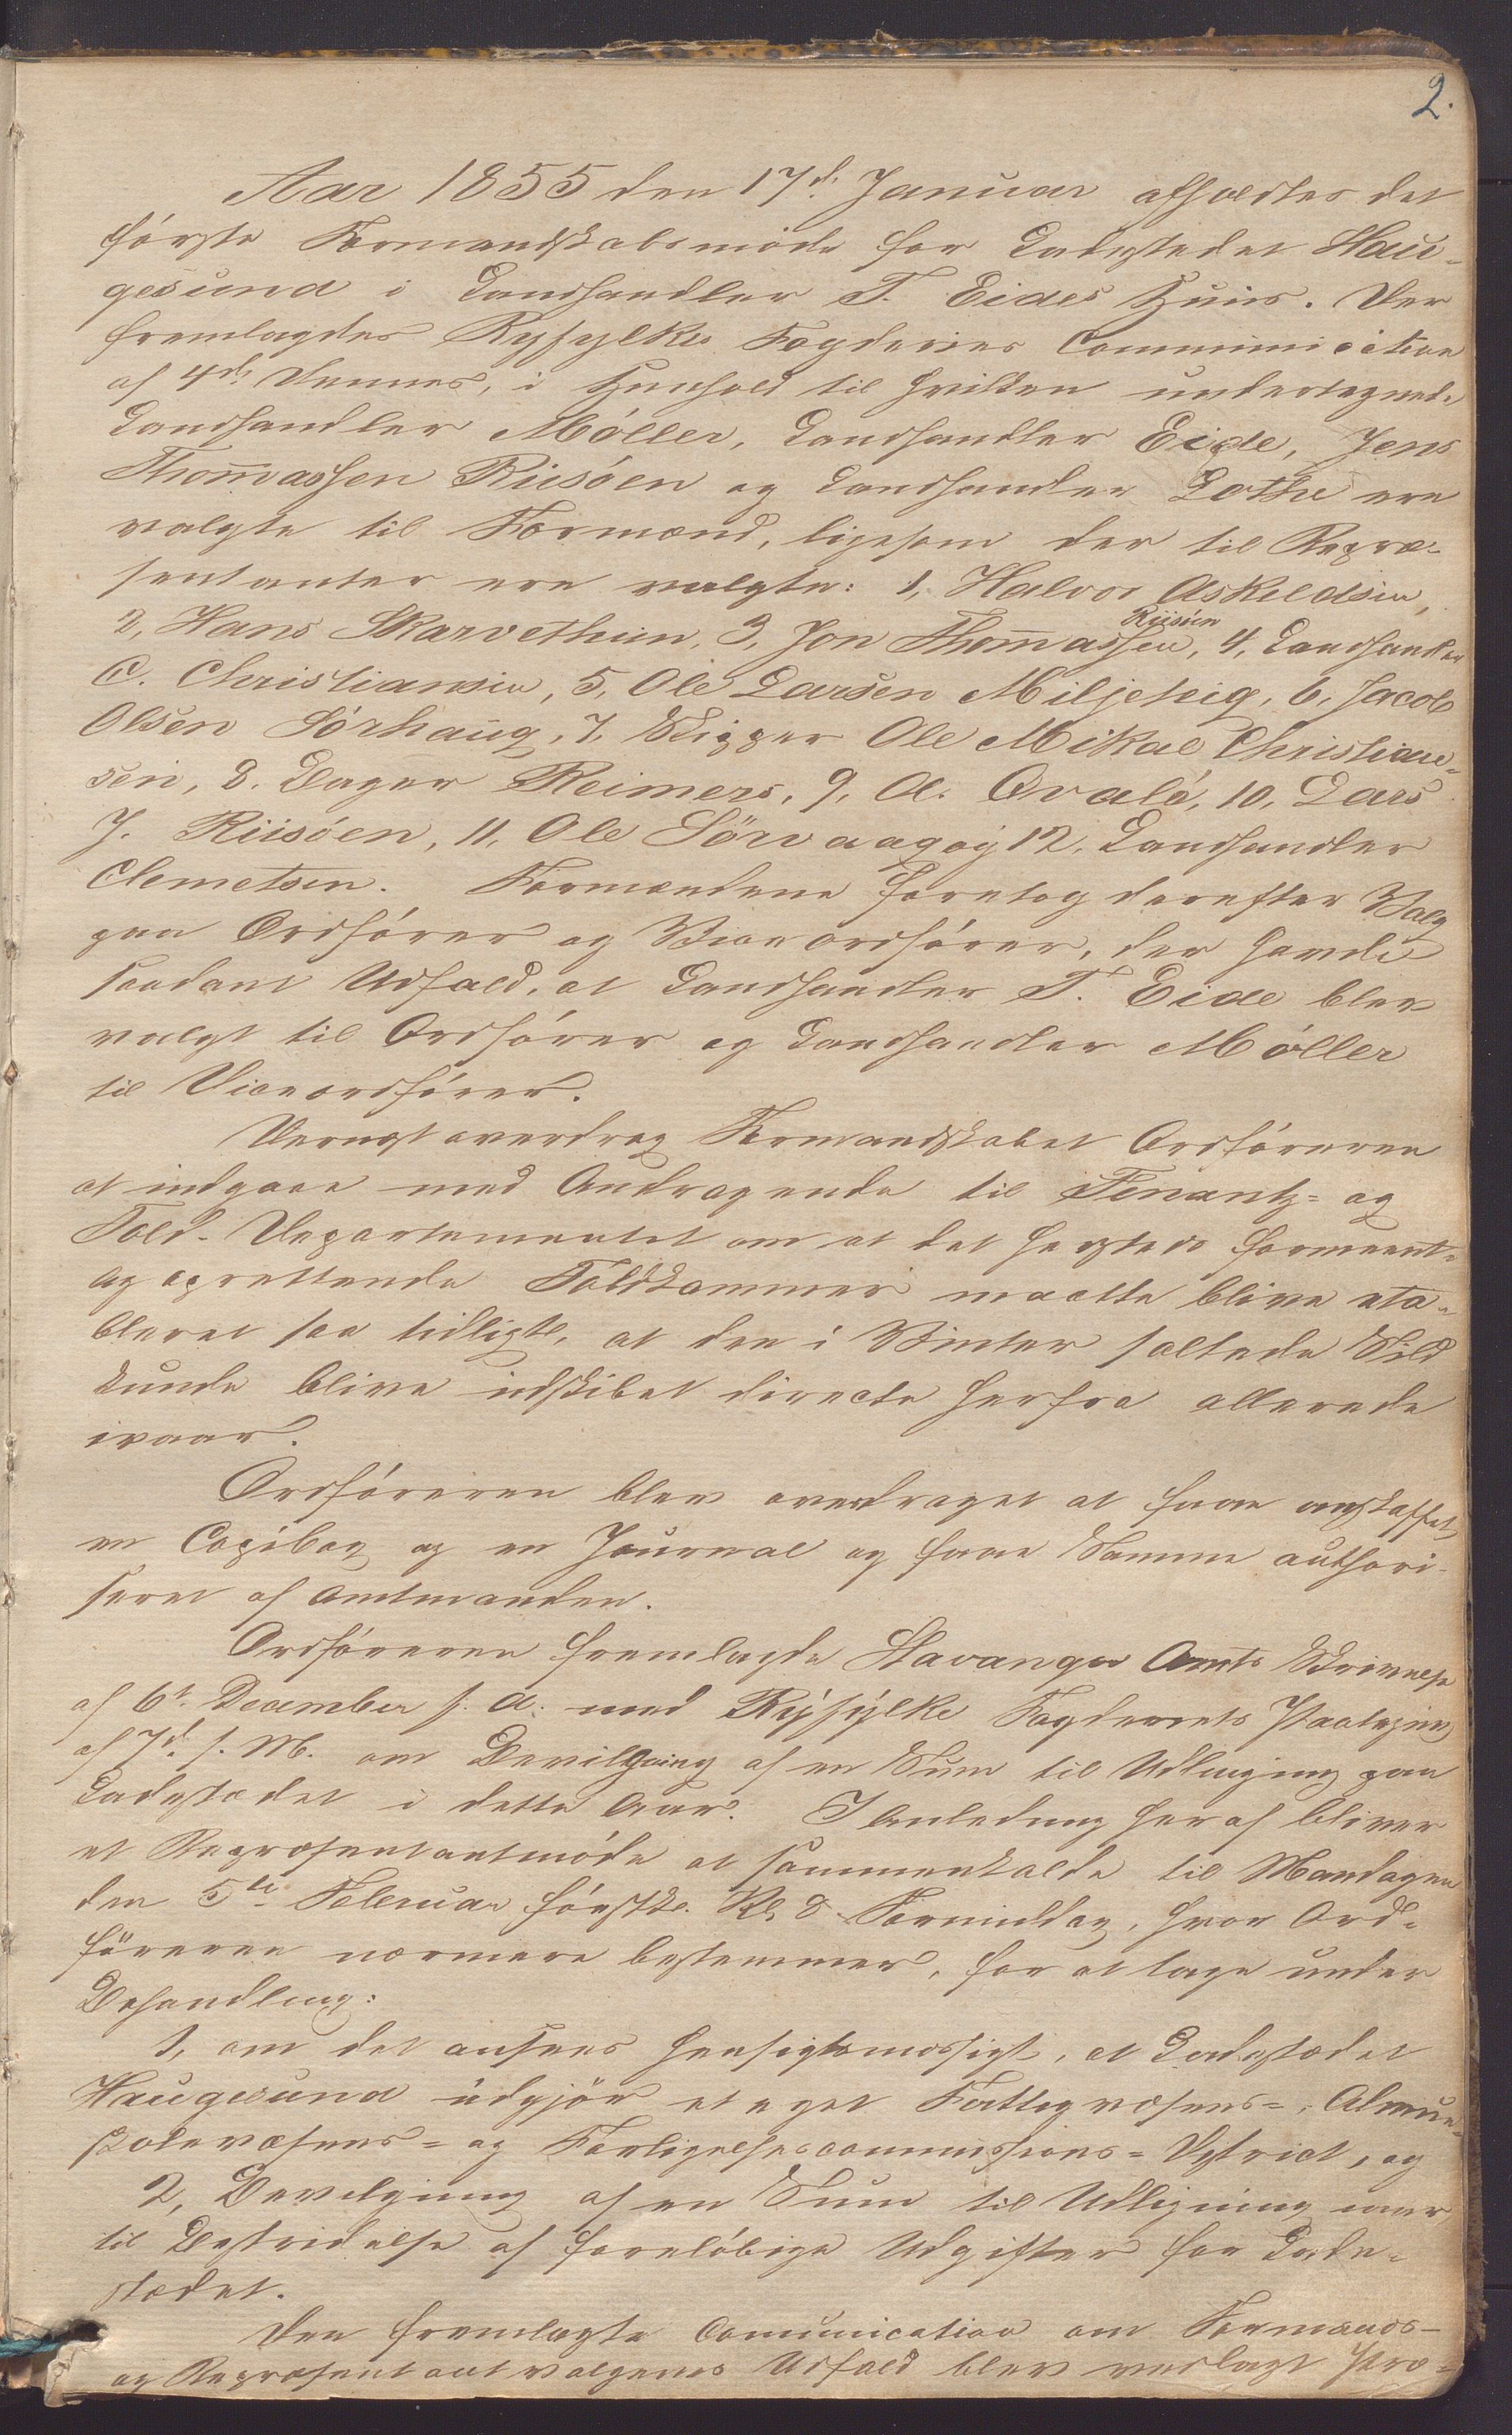 2.
Aar 1855 den 17d. Januar afholdtes det
første Formandskabsmöde for Ladestedet Hau-
gesund i Landhandler T. Eides Huus. Der
fremlagdes Ryfylke Fogderies Communication
af 4d. Dennes, i Henhold til hvilken undertegnede
Landhandler Møller, Landhandler Eide, Jens
Thomassen Riisøen og Landhandler Lothe ere
valgte til Formænd, ligesom der til Repræ-
sentanter ere valgte: 1, Halvor Askildsen,
2, Hans Skarvethun, 3, Jon Thomassen Riisøen, 4, Landhandler
C. Christiansen, 5, Ole Larsen Miljeteig, 6, Jacob
Olsen Sørhaug, 7, Skipper Ole Mikal Christian-
sen, 8. Bager Reimers, 9, A. Qvalé, 10, Lars
J. Riisøen, 11, Ole Sörvaag og 12, Landhandler
Clemetsen. Formændene foretog derefter Valg
paa Ordfører og Viceordfører, der havde
saadant Udfald, at Landhandler T. Eide blev
valgt til Ordfører og Landhandler Møller
til Viceordfører.
Dernæst overdrog Formandskabet Ordføreren
at indgaae med Andragende til Finantz- og
Told-Departementet om at det herstede
oprettende Toldkammer maatte blive eta-
bleret saa tidligt, at den i Vinter saltede Sild
kunde blive udskibet directe herfra allerede
ivaar.
Ordføreren blev overdraget at faae anskaffet
en Copibog og en Journal og faae Samme authori-
seret af Amtmanden.
Ordføreren fremlagde Stavanger Amts Skrivelse
af 6t. December f. A. med Ryfylke Fogderiets Paategning
af 7d. s. M. om Bevilgning af en Sum til Udligning paa
Ladestædet i dette Aar. I Anledning heraf bliver
et Repræsentantmöde at sammenkalde til Mandagen
den 5te Februar førstk. Kl. 8 Formiddag, hvor Ord-
föreren nærmere bestemmer, for at tage under
Behandling:
1, om det ansees hensigtsmæssigt, at Ladestædet
Haugesund udgjör et eget Fattigvæsens-, Almue-
skolevæsens- og Forligelsescommissions-District, og
2, Bevilgning af en Sum til Udligning iaar
til Bestridelse af foreløbige Udgifter for Lade-
stædet.
Den fremlagte Comunication om Formands-
og Repræsentantvalgenes Udfald blev vedlagt Pro-